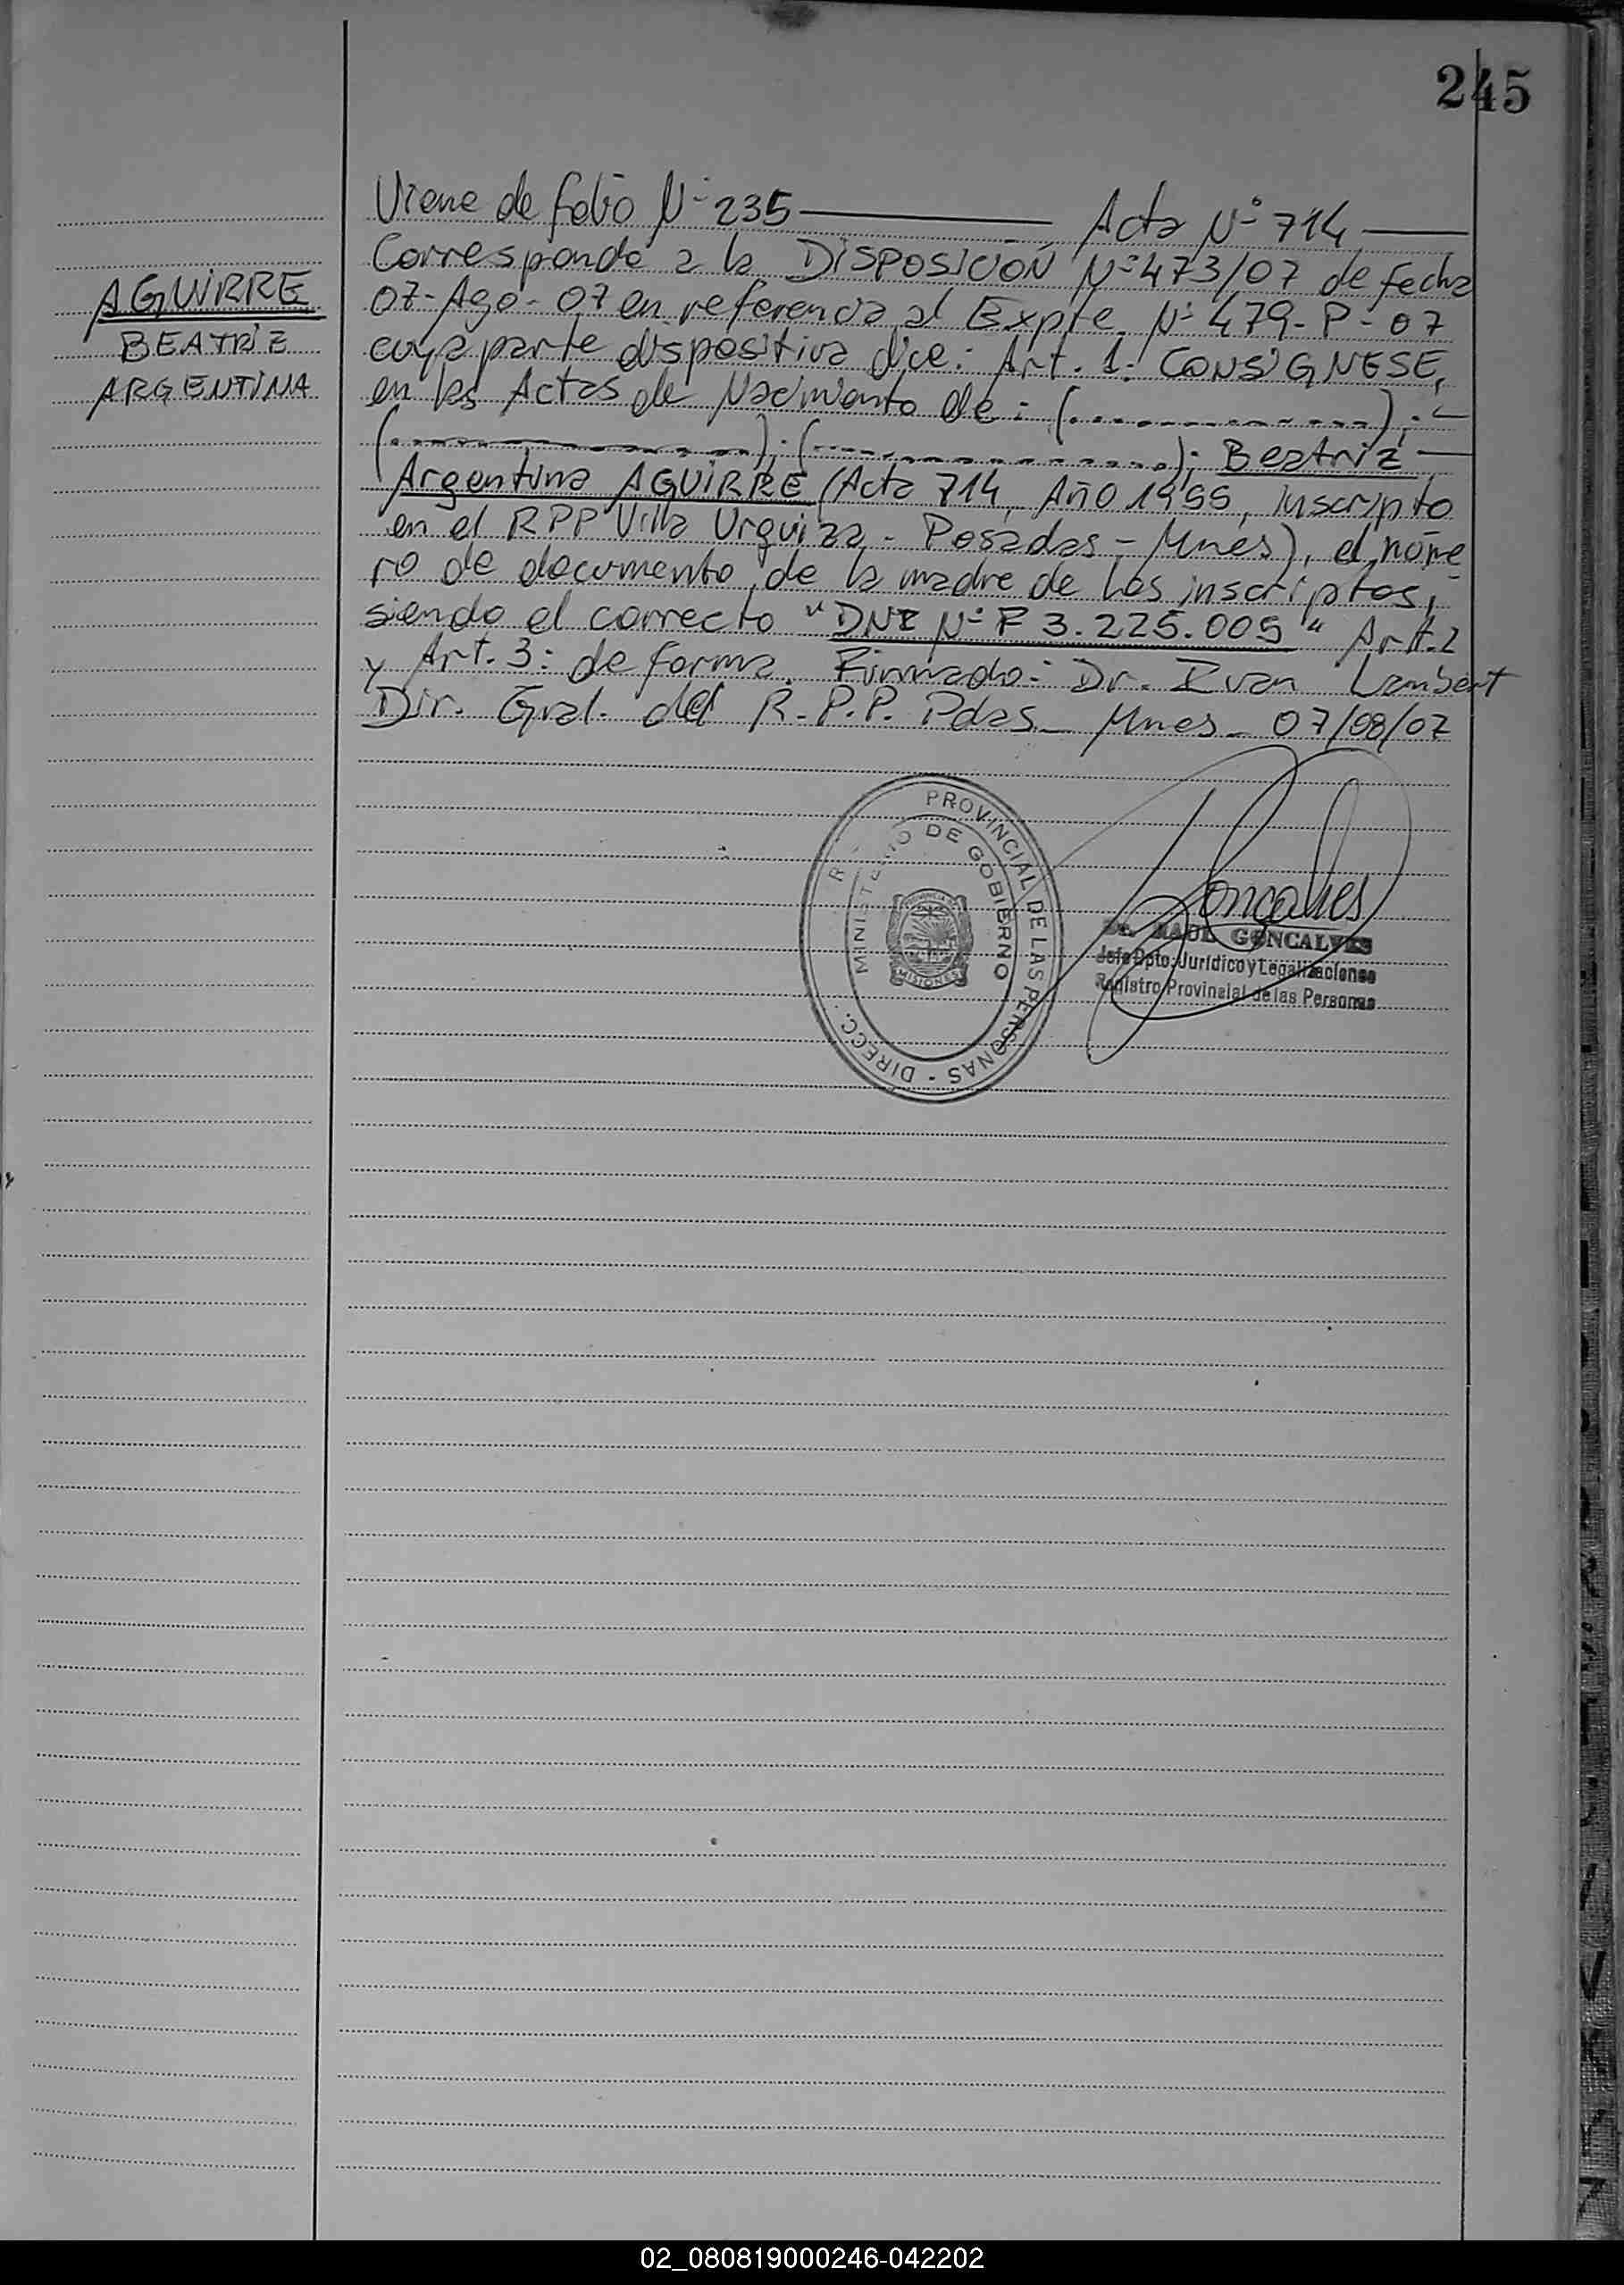 245
Viene de folio Nº 235 Acta Nº 714
AGUIRRE
BEATRIZ
ARGENTINA
Corresponde a la DISPOSICIÓN Nº 473/07 de fecha
07-Ago-07 en referencia al Expte. Nº 479-P-07
cuya parte dispositiva dice: Art. 1: CONSIGNESE,
en las Actas de Nacimiento de: (..............);
(..............); (..............); Beatriz
Argentina AGUIRRE (Acta 714, Año 1955, inscripto
en el RPP Villa Urquiza - Posadas - Mnes), el núme
ro de documento de la madre de los inscriptos,
siendo el correcto "DNI Nº F 3.225.005" Art. 2
y Art. 3: de forma. Firmado: Dr. Ivan Lambert
Dir. Gral. del R.P.P. Pdas - Mnes - 07/08/07
PROVINCIAL DE LAS PERSONAS - DIRECC.
MINISTERIO DE GOBIERNO
MISIONES
Goncalves
Dr. RAUL GONCALVES
Jefe Dpto. Jurídico y Legalizaciones
Registro Provincial de las Personas
02_080819000246-042202